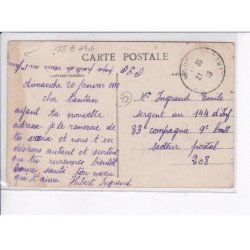 CARTE POSTALE
dimanche 20 janvier 1918
cher tantan
ayant ta nouvelle
adresse je te remercie de
tes vœux et nous t'en
désirons autant et surtout
que tu reviennes bientôt
bonne santé Ton neveu
qui t'aime Hubert Ingrand
Mr Ingrand Emile
sergent au 144 d'Inf
33e compagnie 9e bat
secteur postal
208